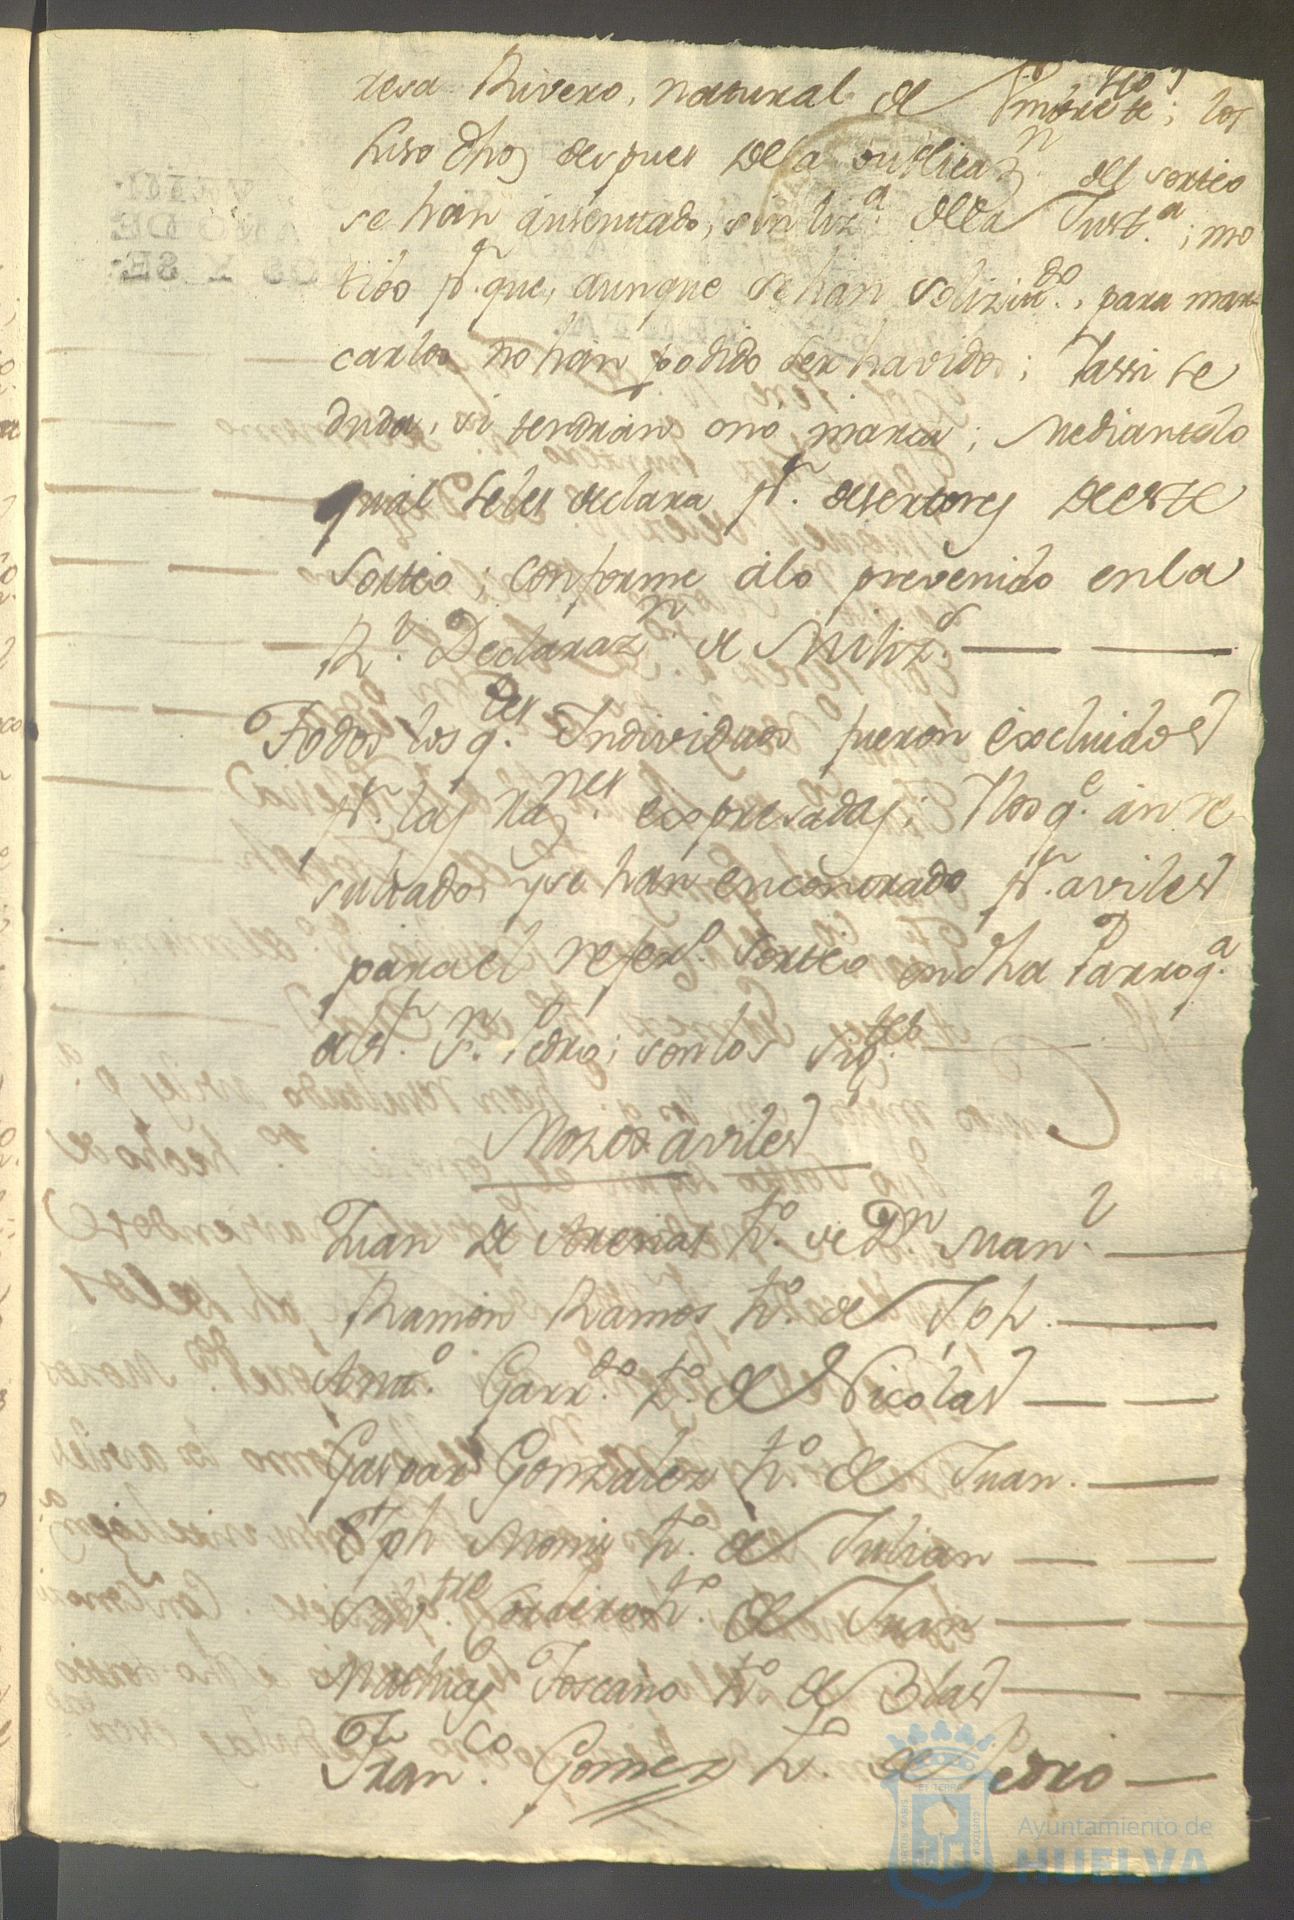 resa Rivero, natural de ; los
suso dhos despues dela publicazn. del sorteo
se han ausentado, sin liza. dela Justa.; mo
tibo pr. que, aunque se han solizitado., para mar
carlos no han podido ser havidos; Yassi se
duda, si tendrán onó marca; Mediantelo
qual seles declara pr. desertores De este
Sorteo; conforme álo prevenido enla
Rl. Declarazn. de Miliza.
Todos los qdes. Individuos fueron excluidos
pr. las raznes. expresadas; Ylos qe. án re
sultado, yse han encontrado pr. aviles
parael referdo. Sorteo en dha Parroqa.
del Sr. Sn. Pedro; son los sigtes.
Mozos aviles
Juan de Arenas ho. de Dn. Manl.
Ramon Ramos ho. de Jph.
Anto. Garrdo. ho. de Nicolas
Gaspar Gonzalez ho. de Juan.
Jph ho. de Julian
Sevtre. Cordero ho. de Juan
Mathias Toscano ho. de Blas
Franco. Gomez ho. de Pedro
Ayuntamiento de
HUELVA